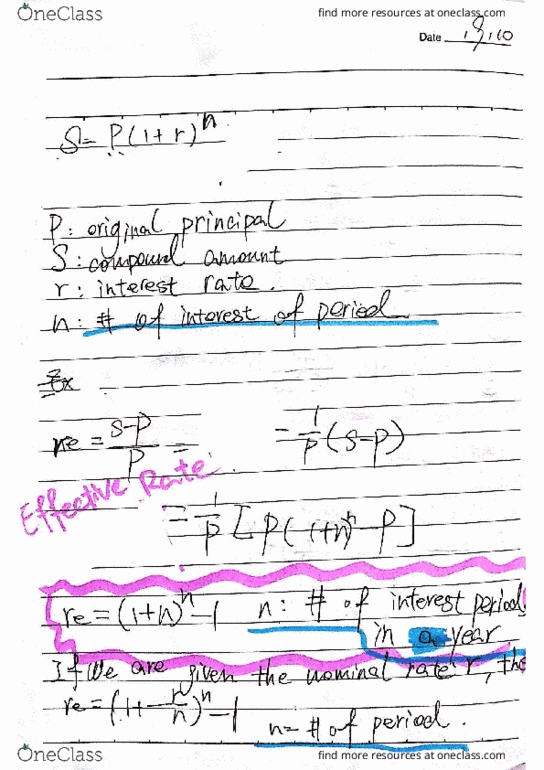 OneClass
find more resources at oneclass.com
Date
S= P(1+r)^n
P: original principal
S: compound amount
r: interest rate.
n: # of interest of period
Ex
re = S-P/P = = 1/P (S-P)
Effective Rate
= 1/P [P(1+n)^n - P]
re = (1+n)^n - 1 n: # of interest periods
in a year
If We are given the nominal rate r, the
re = (1+r/n)^n - 1 n= # of period.
OneClass
find more resources at oneclass.com